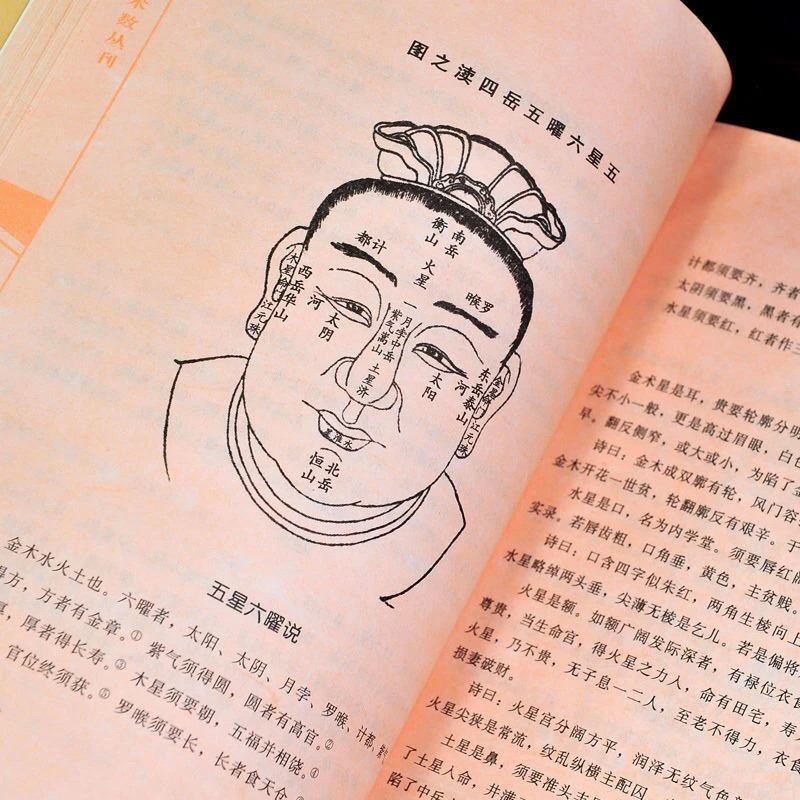 术数丛刊
图之渎四岳五曜六星五
南岳
衡山
火星
计都
罗睺
木星命门
西岳华山
河
太阴
江元珠
一月孛中岳
紫气嵩山土星济
太阳
河
东岳泰山
金星命门
江元珠
水淮星
北岳
恒山
五星六曜说
金木水火土也。六曜者，太阳、太阴、月孛、罗睺、计都、紫气
得方，方者有金章。① 紫气须得圆，圆者有高官。②
厚，厚者得长寿。③ 木星须要朝，五福并相饶。④
官位终须获。⑤ 罗睺须要长，长者食天仓
计都须要齐，齐者
太阴须要黑，黑者有
水星须要红，红者作三
金木星是耳，贵要轮廓分明
尖不小一般，更是高过眉眼，白色
早。翻反侧窄，或大或小，为陷了金
诗曰：金木成双廓有轮，风门容
金木开花一世贫，轮翻廓反有艰辛。于
水星是口，名为内学堂。须要唇红阔
实录。若唇齿粗，口角垂，黄色，主贫贱。
诗曰：口含四字似朱红，两角生棱向上
水星略绰两头垂，尖薄无棱是乞儿。若是偏将
火星是额。如额广阔发际深者，有禄位衣食
尊贵，当生命宫，得火星之力人，命有田宅，寿
火星，乃不贵，无子息一二人，至老不得力，衣食
损妻破财。
诗曰：火星宫分阔方平，润泽无纹气色
火星尖狭是常流，纹乱纵横主配囚。
土星是鼻，须要准头丰
了土星人命，井满
陷了中岳